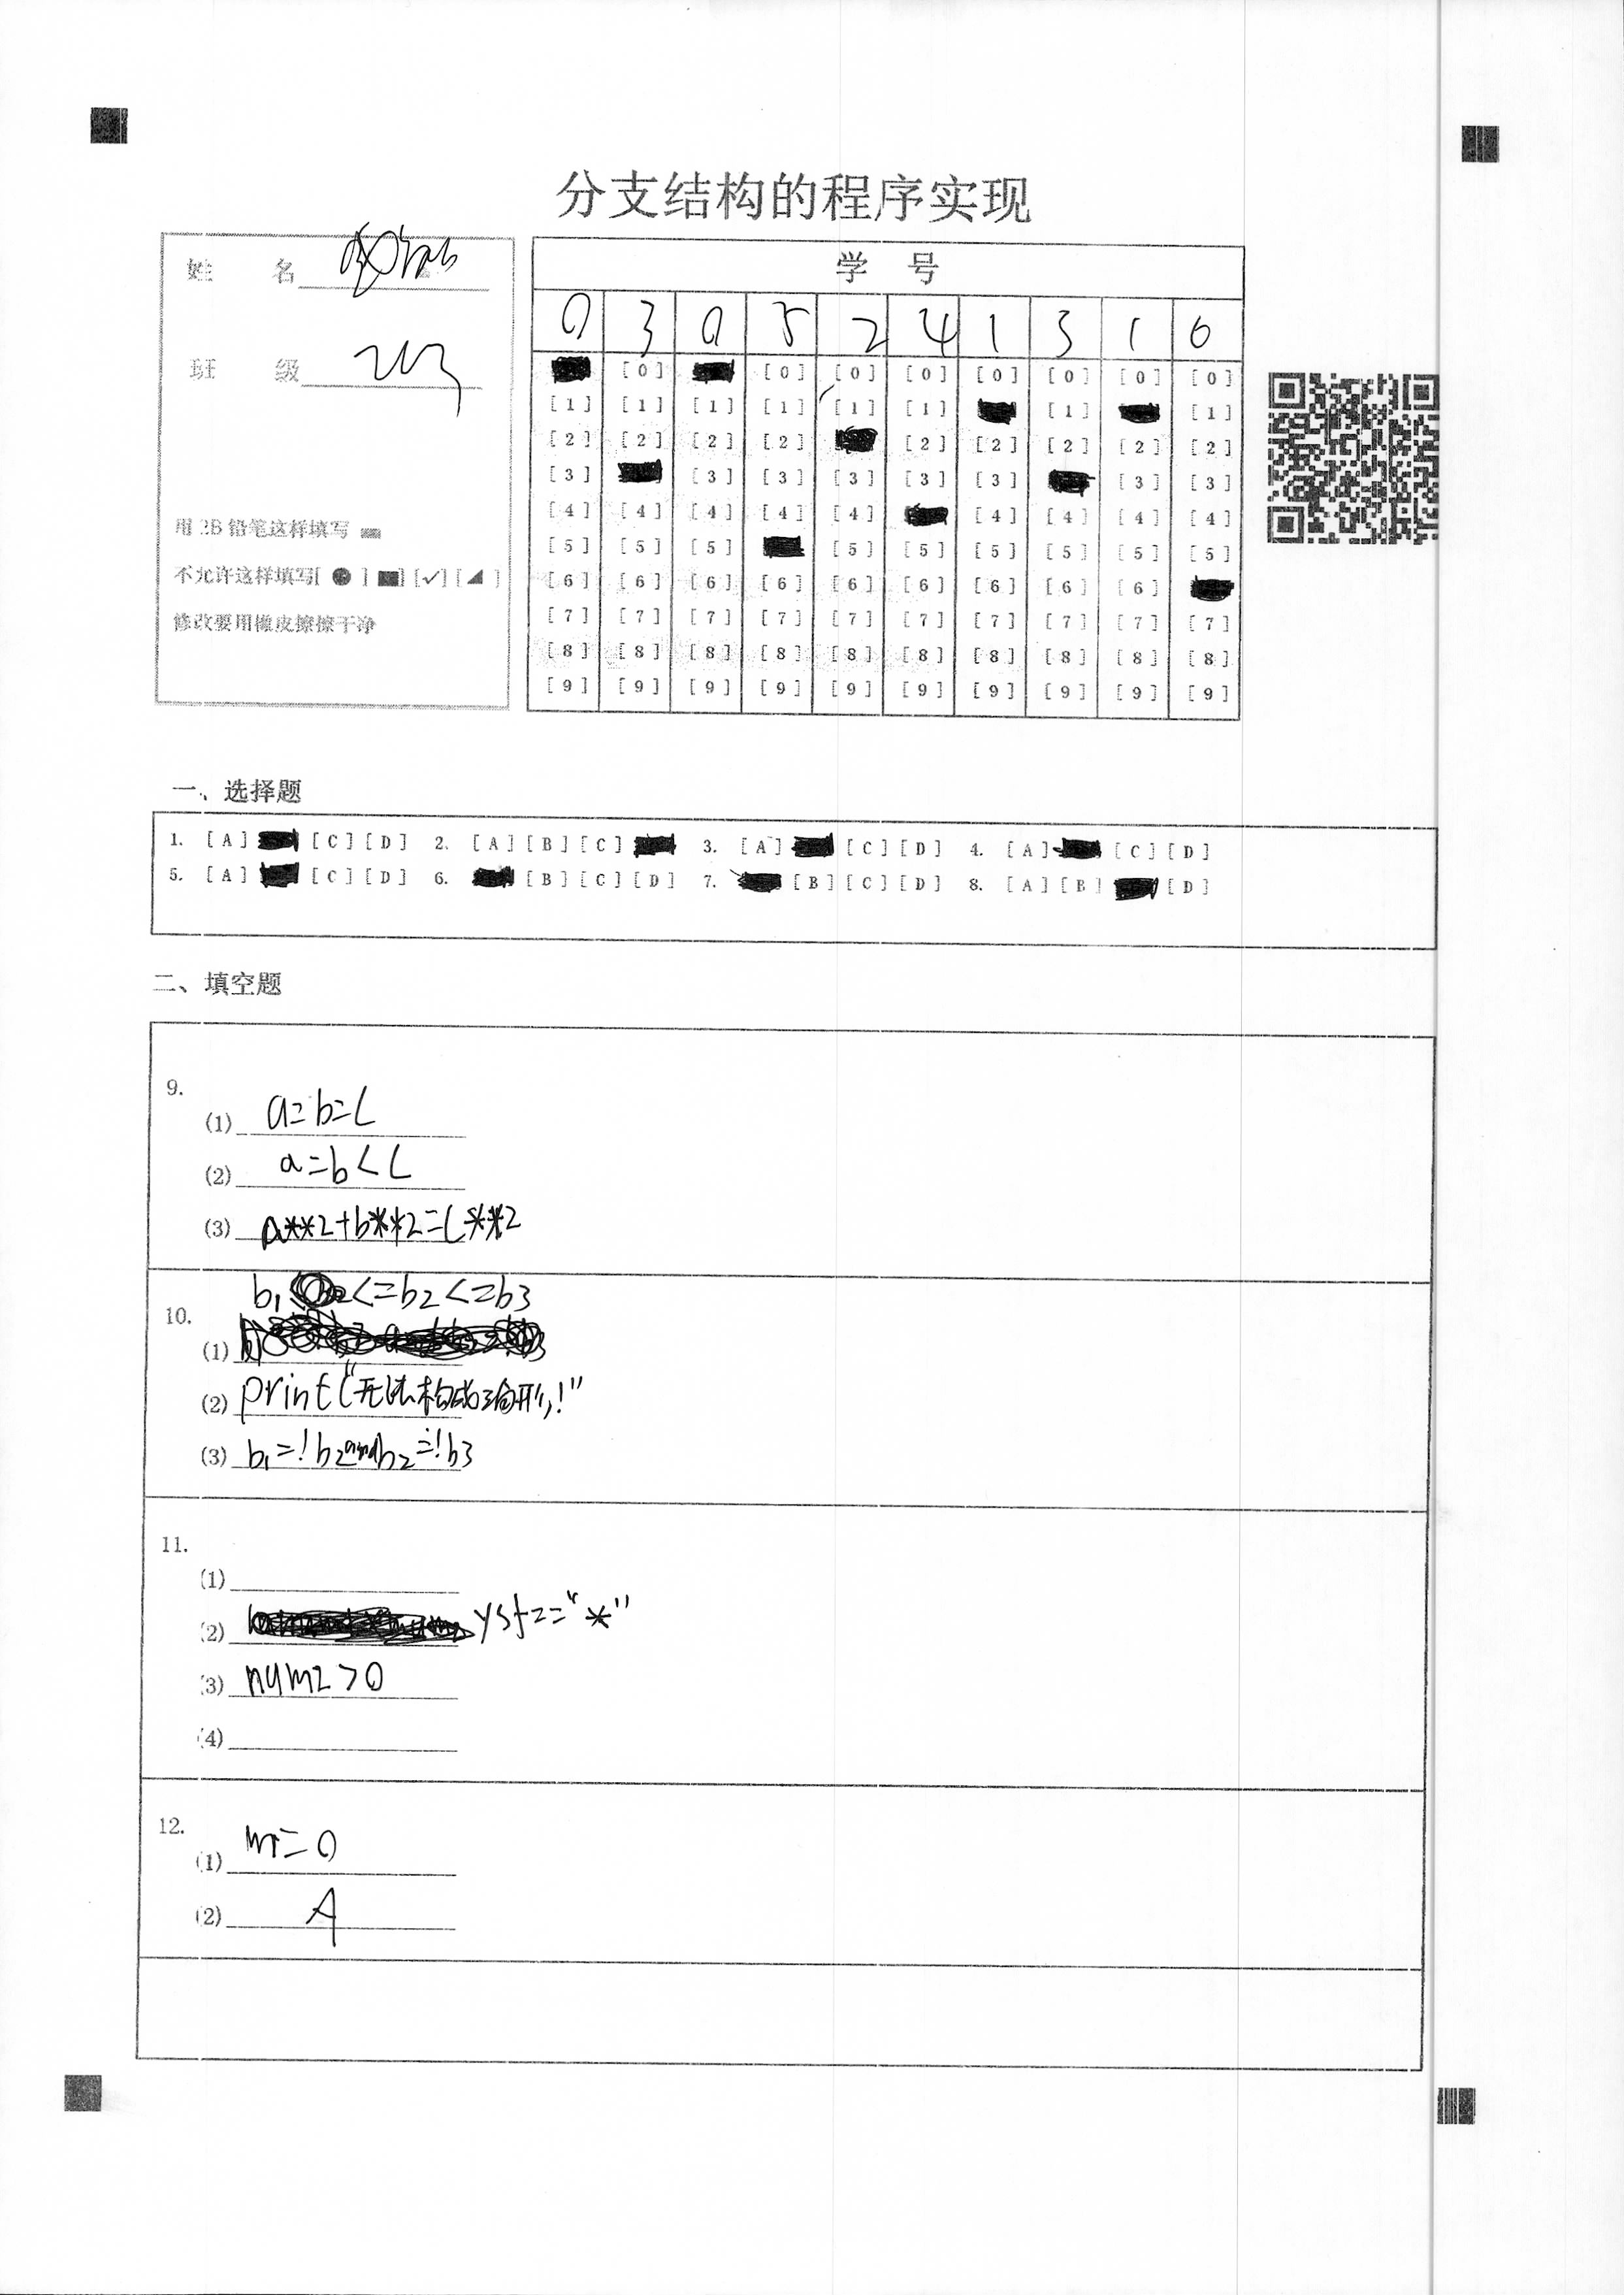 分支结构的程序实现
姓 名
班 级
用 2B 铅笔这样填写
不允许这样填写[ ● ] [■] [✓] [◢ ]
修改要用橡皮擦擦干净
学 号
0 3 0 5 2 4 1 3 1 6
[0] [0] [0] [0] [0] [0] [0] [0]
[1] [1] [1] [1] [1] [1] [1] [1]
[2] [2] [2] [2] [2] [2] [2] [2] [2]
[3] [3] [3] [3] [3] [3] [3] [3]
[4] [4] [4] [4] [4] [4] [4] [4] [4]
[5] [5] [5] [5] [5] [5] [5] [5] [5]
[6] [6] [6] [6] [6] [6] [6] [6] [6]
[7] [7] [7] [7] [7] [7] [7] [7] [7] [7]
[8] [8] [8] [8] [8] [8] [8] [8] [8] [8]
[9] [9] [9] [9] [9] [9] [9] [9] [9] [9]
一、选择题
1. [A] [C] [D] 2. [A] [B] [C] 3. [A] [C] [D] 4. [A] [C] [D]
5. [A] [C] [D] 6. [B] [C] [D] 7. [B] [C] [D] 8. [A] [B] [D]
二、填空题
9.
(1) a=b=c
(2) a=b<c
(3) a**2+b**2=c**2
b1<=b2<=b3
10.
(1)
(2) print("无法构成三角形!"
(3) b1=!b2andb2=!b3
11.
(1)
(2) ysf=="*"
(3) num2>0
(4)
12.
(1) m=0
(2) A